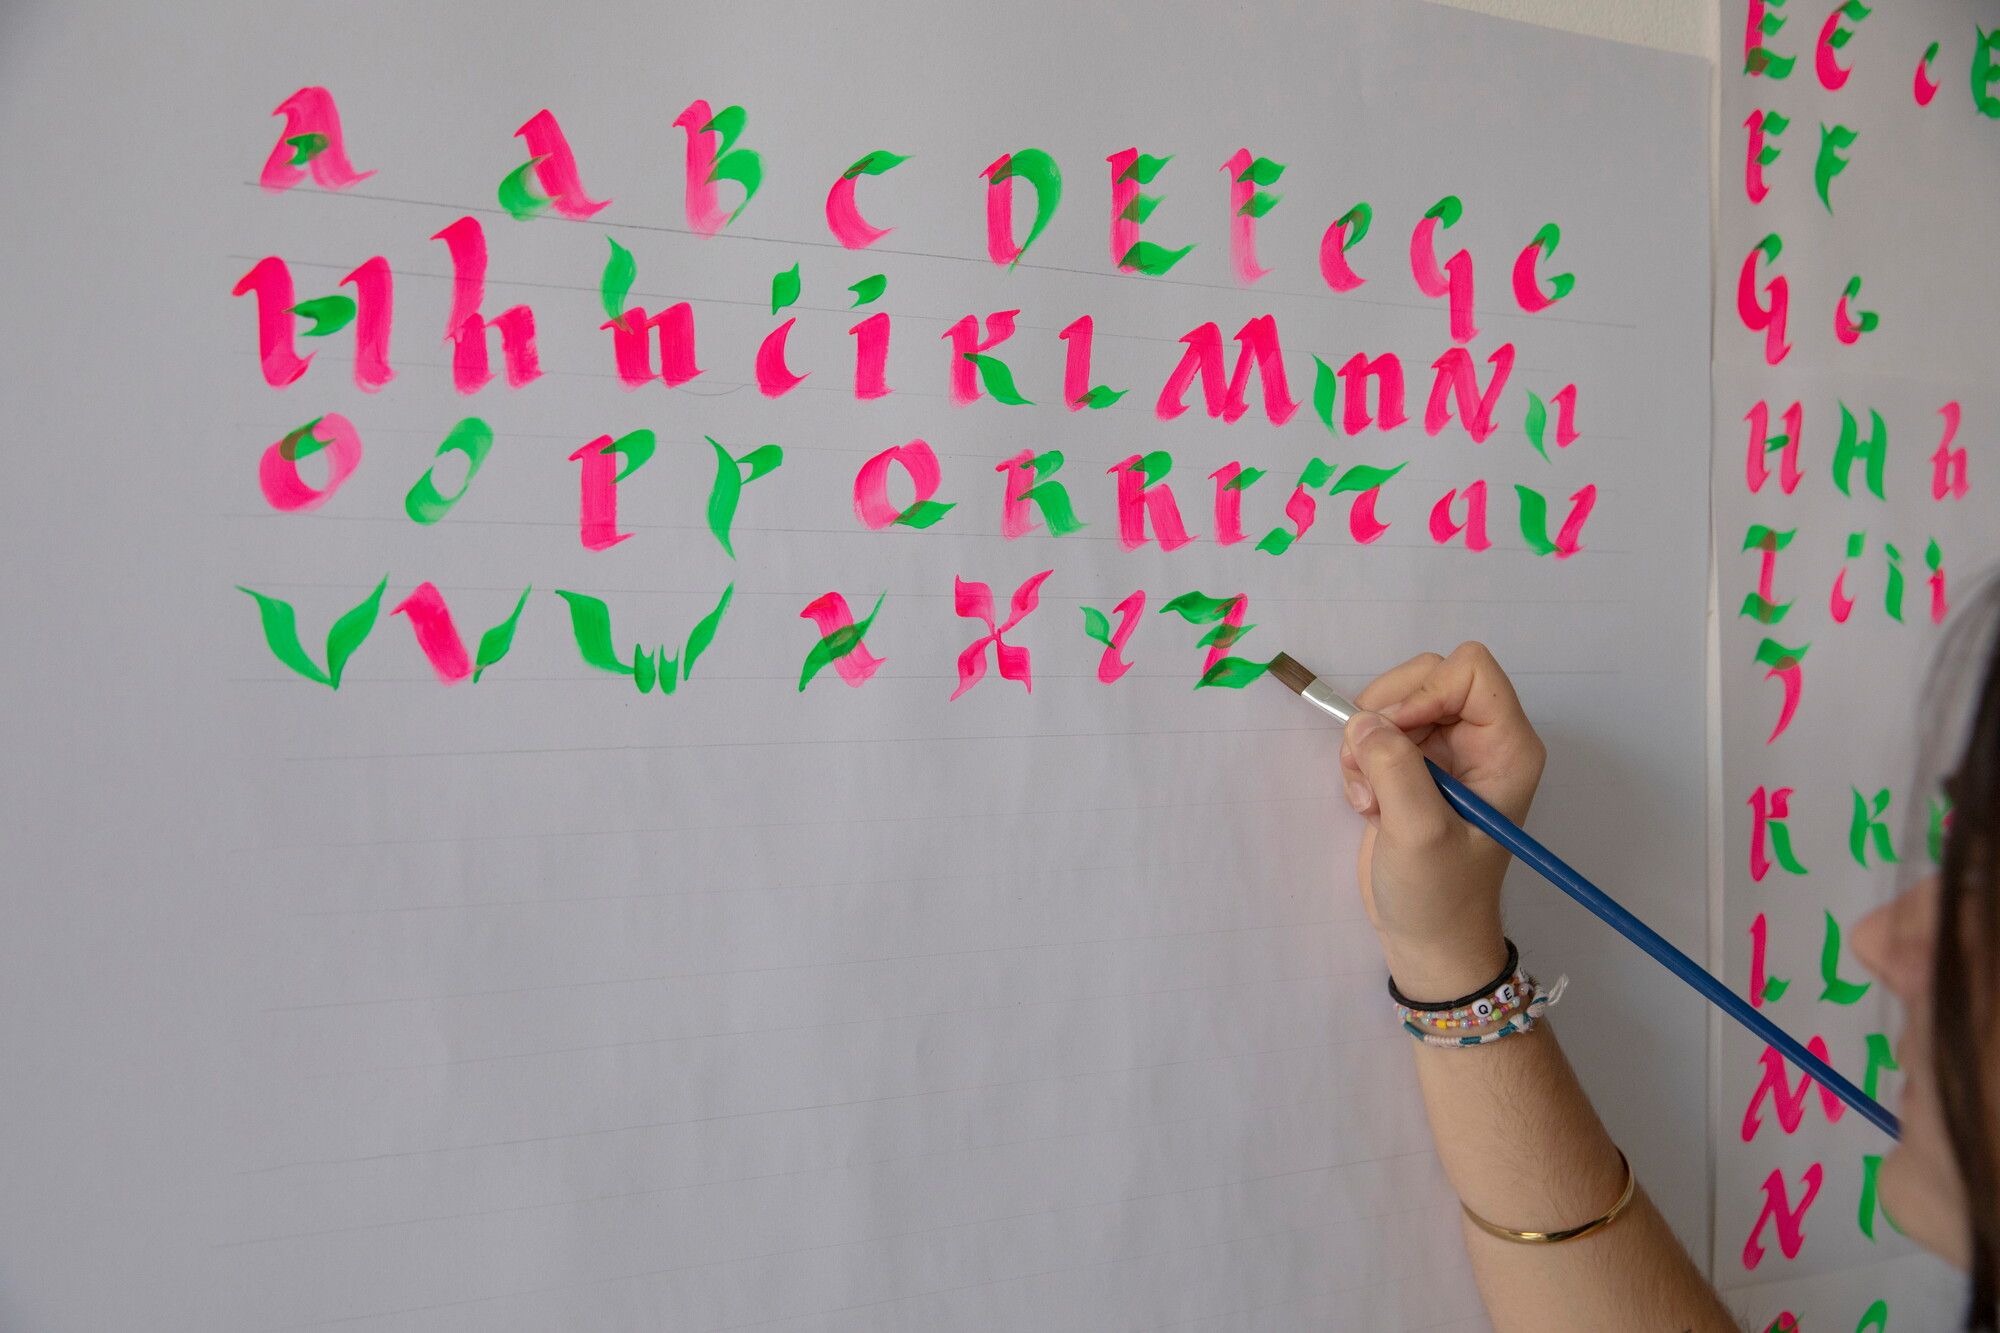 A a B C D E F e G G
H h h i i K L M m N n
O O P P Q R R r S T a U
V V W X X Y Z
E E c E
F F
G G
H H h
I i i i
J
K K
L L
M
N
Q E